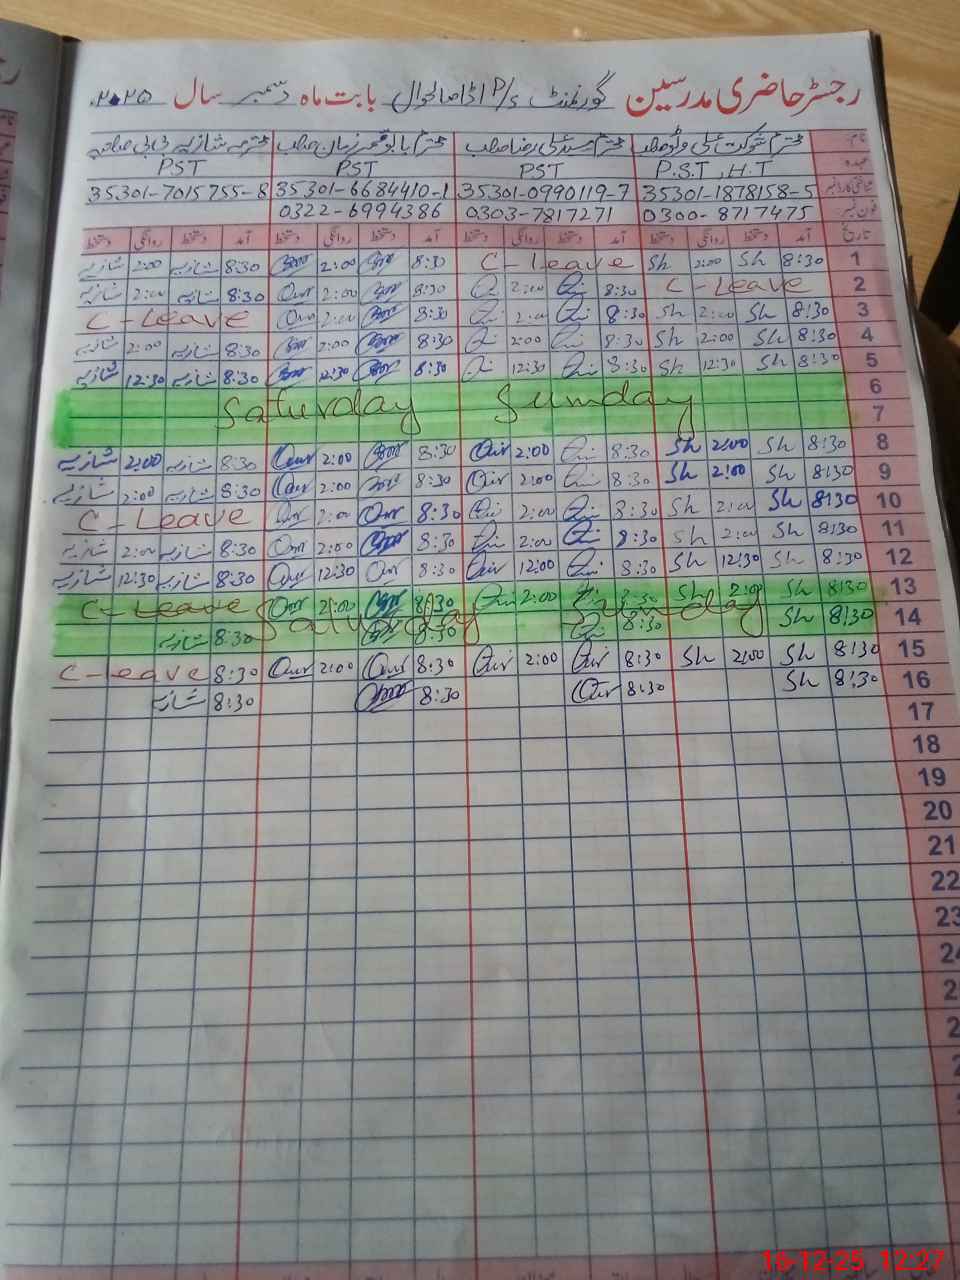 رجسٹر حاضری مدرسین گورنمنٹ P/S اڈا صالحوال بابت ماہ دسمبر سال ۲۰۲۵ء
نام محترم شوکت علی وٹو صاحب محترم سید علی رضا صاحب محترم بابو محمد زمان صاحب محترمہ شازیہ بی بی صاحبہ
عہدہ P.S.T, H.T PST PST PST
شناختی کارڈ نمبر 35301-1878158-5 35301-0990119-7 35301-6684410-1 35301-7015755-8
فون نمبر 0300-8717475 0303-7817271 0322-6994386
تاریخ آمد دستخط روانگی دستخط آمد دستخط روانگی دستخط آمد دستخط روانگی دستخط آمد دستخط روانگی دستخط
1 8:30 Sh 2:00 Sh C-Leave 8:30 2:00 8:30 شازیہ 2:00 شازیہ
2 C-Leave 8:30 2:00 8:30 2:00 8:30 شازیہ 2:00 شازیہ
3 8:30 Sh 2:00 Sh 8:30 2:00 8:30 2:00 C-Leave
4 8:30 Sh 2:00 Sh 8:30 2:00 8:30 2:00 8:30 شازیہ 2:00 شازیہ
5 8:30 Sh 12:30 Sh 8:30 12:30 8:30 12:30 8:30 شازیہ 12:30 شازیہ
6 Saturday Sumday
7
8 8:30 Sh 2:00 Sh 8:30 2:00 8:30 2:00 8:30 شازیہ 2:00 شازیہ
9 8:30 Sh 2:00 Sh 8:30 2:00 8:30 2:00 8:30 شازیہ 2:00 شازیہ
10 8:30 Sh 2:00 Sh 8:30 2:00 8:30 2:00 C-Leave
11 8:30 Sh 2:00 Sh 8:30 2:00 8:30 2:00 8:30 شازیہ 2:00 شازیہ
12 8:30 Sh 12:30 Sh 8:30 12:00 8:30 12:30 8:30 شازیہ 12:30 شازیہ
13 8:30 Sh 2:00 Sh 8:30 2:00 8:30 2:00 C-Leave
Saturday Sunday
14 8:30 Sh 8:30 8:30 8:30 شازیہ
15 8:30 Sh 2:00 Sh 8:30 2:00 8:30 2:00 8:30 C-Leave
16 8:30 Sh 8:30 8:30 8:30 شازیہ
17
18
19
20
21
22
23
24
2
2
2
16-12-25 12:27